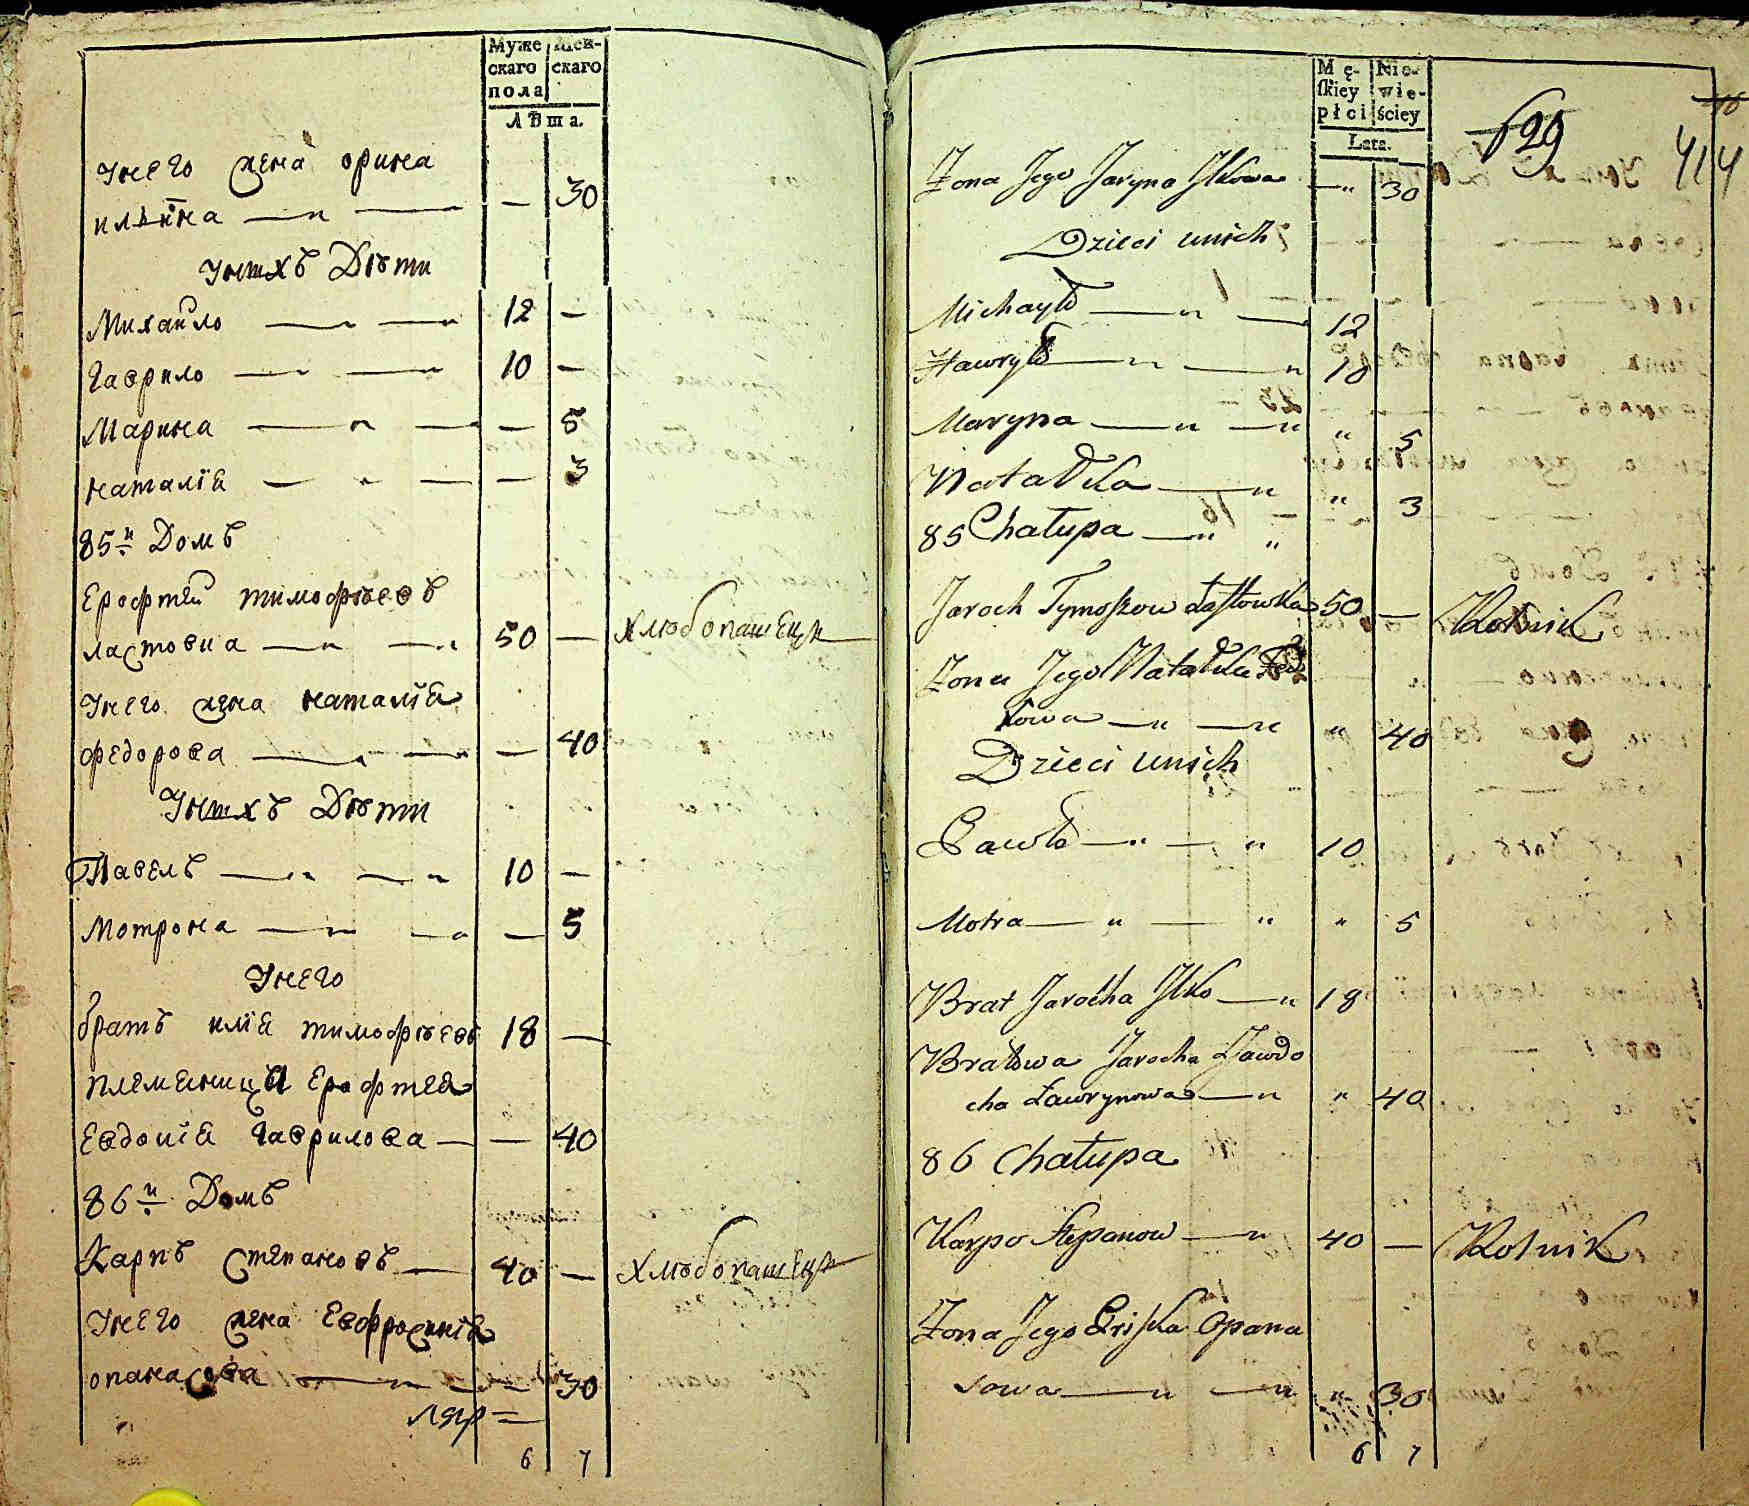 Муже
скаго
пола
Жен-
скаго
Лѣта.
Унего жена орина
илина — 30
Унихъ Дѣти
Михайло 12 —
Гаврило 10 —
Марина — 5
наталїя — 3
85й Домъ
Ерофтей тимофѣевъ
ластовка 50 — Хлѣбопашецъ
Унего жена наталїя
федорова — 40
Унихъ Дѣти
Павелъ 10 —
Мотрона — 5
Унего
братъ илїя тимофѣевъ 18 —
племеница Ерофтея
Евдокїя Гаврилова — 40
86й Домъ
Карпъ Степановъ 40 — Хлѣбопашецъ
Унего жена Евфросинїя
опанасова — 30
6 7
Mę-
skiey
płci
Nie-
wie-
ściey
Lata.
629
414
Żona Jego Jaryna Ilkowa — 30
Dzieci unich
Michayło 12
Hawryło 10
Maryna " 5
Natałka " 3
85 Chałupa
Jaroch Tymoszow Łastowka 50 — Rolnik
Żona Jego Natałka Fedo
rowa " 40
Dzieci unich
Pawło 10
Motra " 5
Brat Jarocha Ilko 18
Bratowa Jarocha Jawdo
cha Ławrynowa " 40
86 Chałupa
Karpo Stepanow 40 — Rolnik
Żona Jego Priska Opana
sowa " 30
6 7